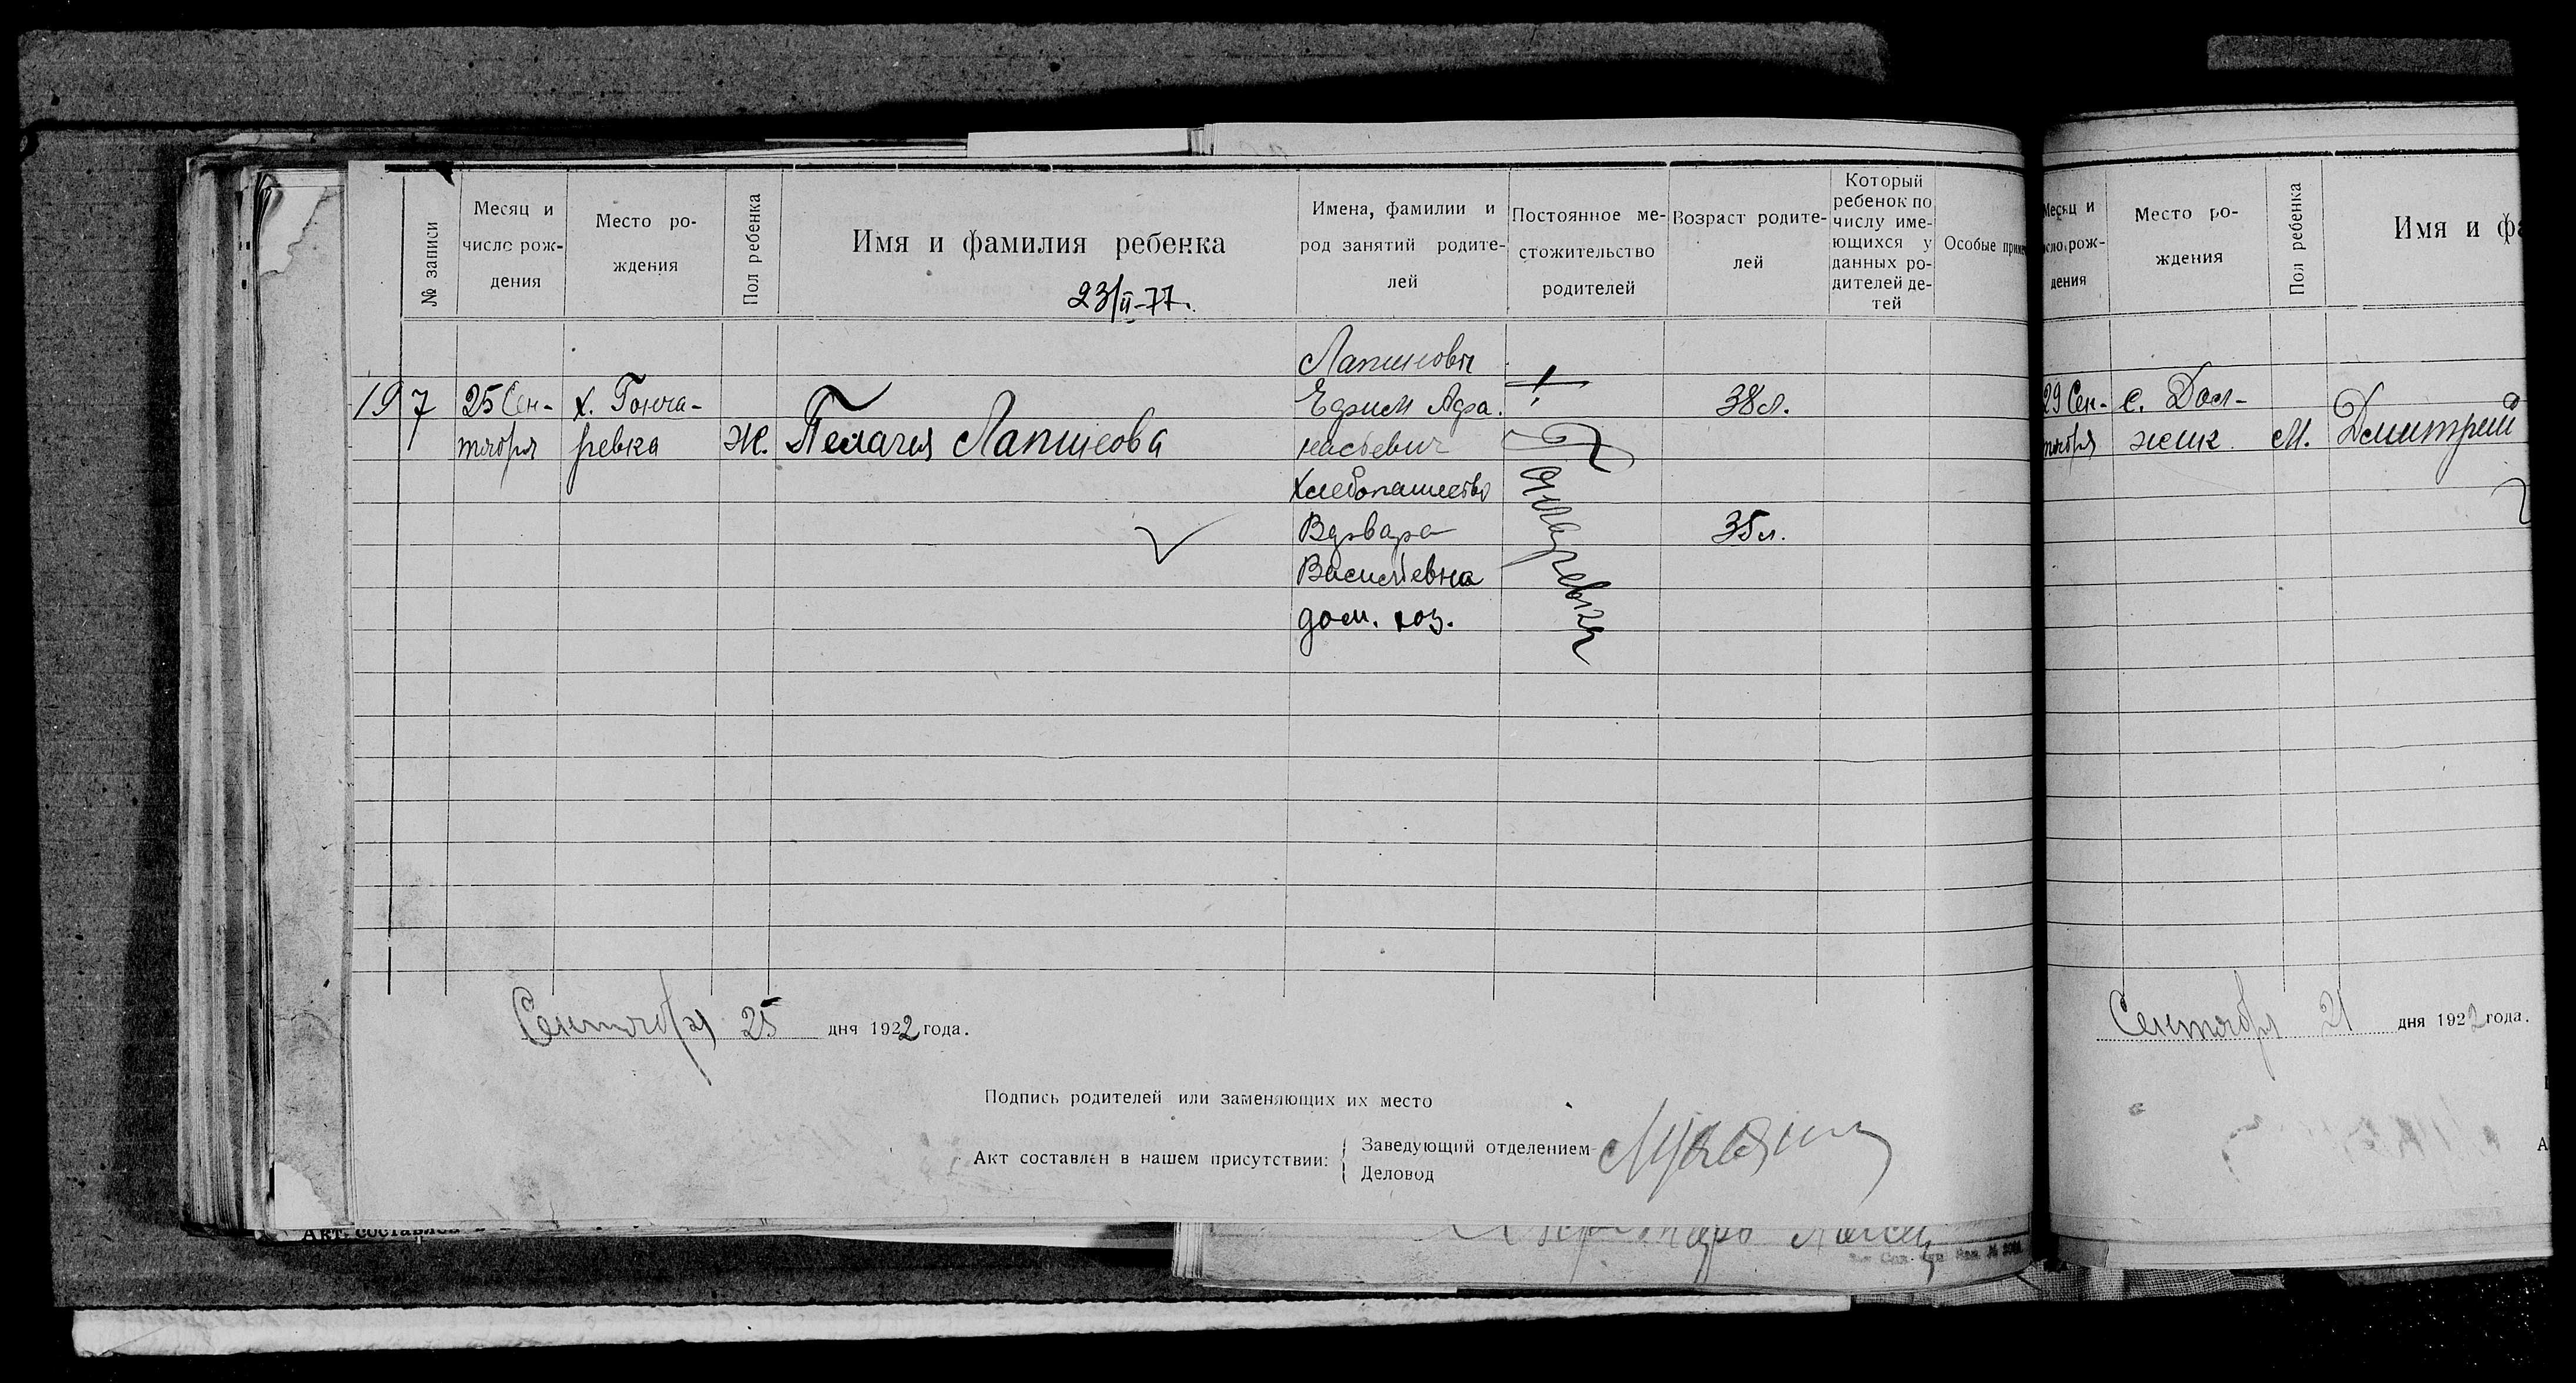 № записи
Месяц и
число рож-
дения
Место ро-
ждения
Пол ребенка
Имя и фамилия ребенка
23/II-77.
Имена, фамилии и
род занятий родите-
лей
Постоянное ме-
стожительство
родителей
Возраст родите-
лей
Который
ребенок по
числу име-
ющихся у
данных ро-
дителей де-
тей
Особые
197
25 Сен-
тября
х. Гонча-
ревка
Ж.
Пелагея Лапшеова
Лапшеовы
Ефрим Афа.
насьевич
Хлебопашество
Варвара
Васильевна
дом. хоз.
х. Гончаревка
38 л.
35 л.
Сентября 25 дня 1922 года.
Подпись родителей или заменяющих их место
Акт составлен в нашем присутствии:
Заведующий отделением
Деловод
Акт составлен
Месяц и
число рож-
дения
Место ро-
ждения
Пол ребенка
Имя и
29 Сен-
тября
с. Дол-
жик
М.
Дмитрий
Сентября 21 дня 1922 года.